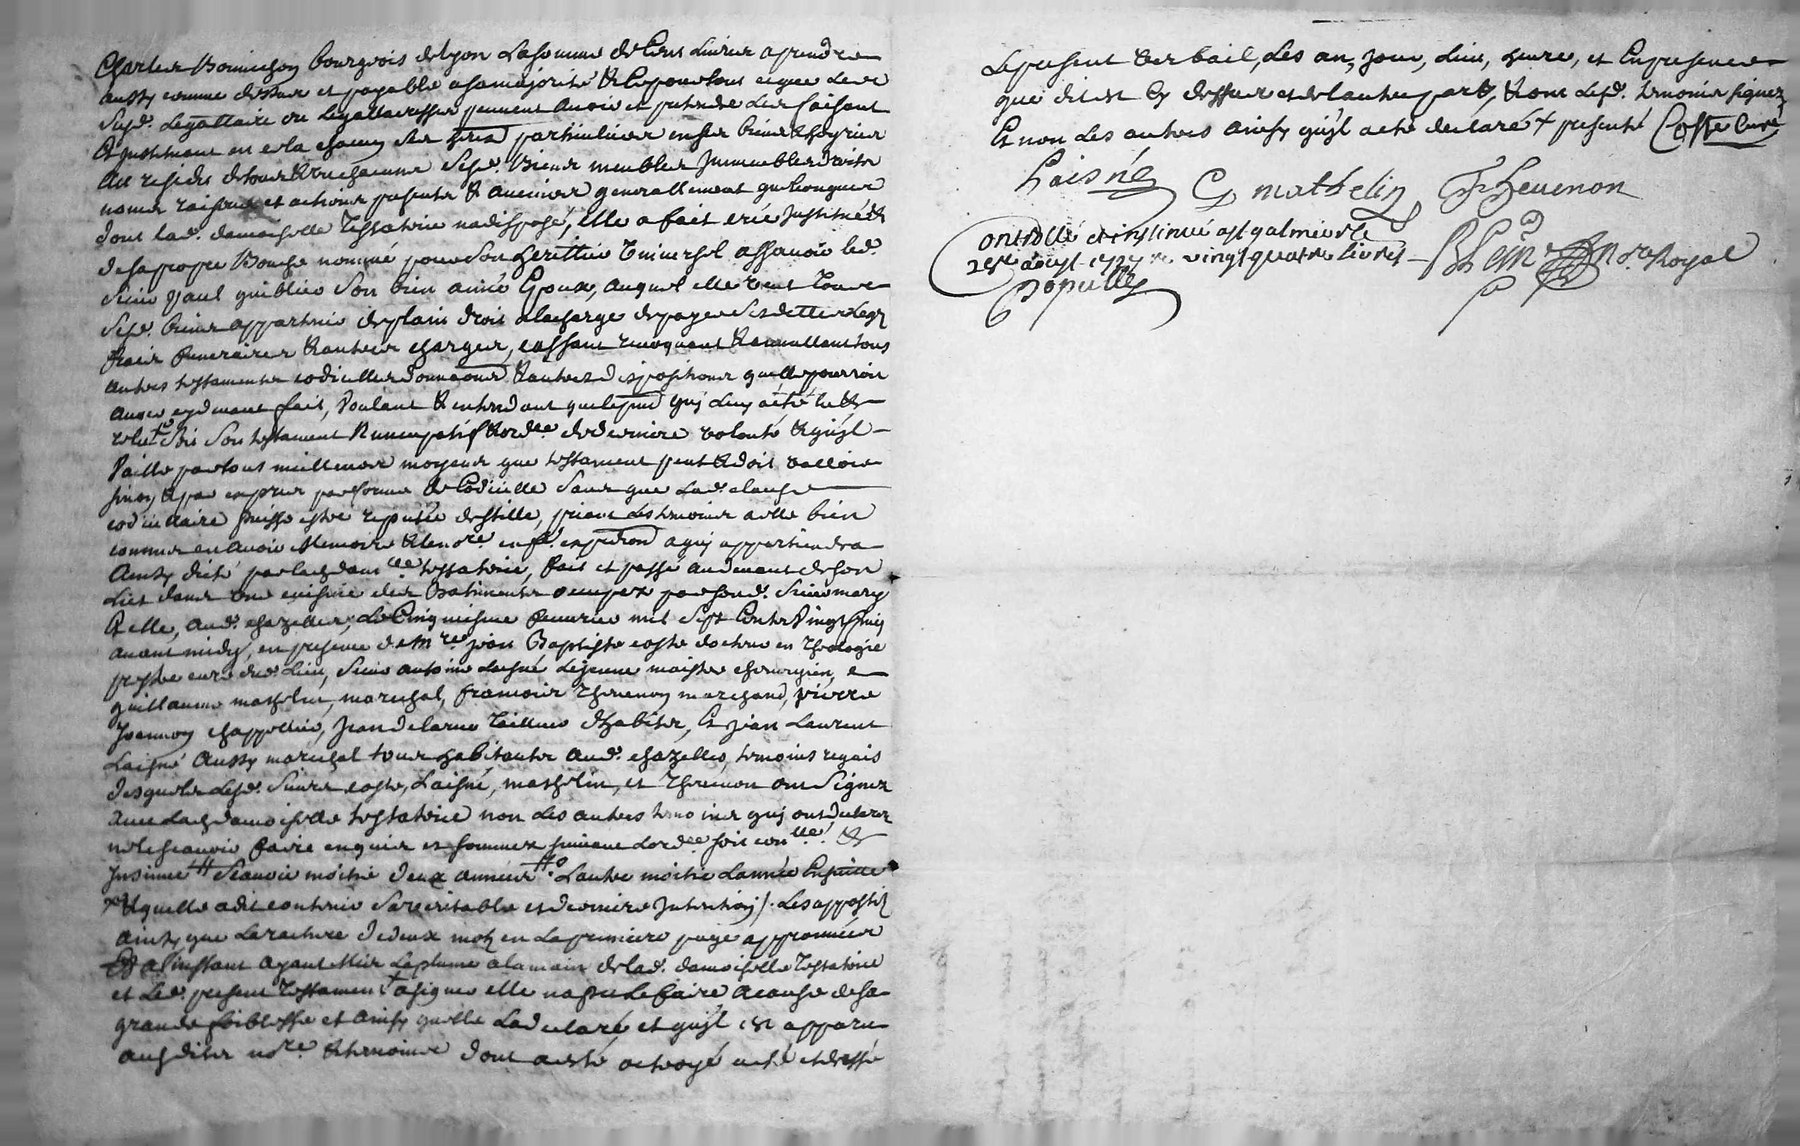 Charles Bonnichon bourgeois de lyon la somme de Cent Livres a prendre
aussy comme dessus et payable a sa majorité & Cepourtout ce que Lesd
susd. Legattaire ou Legattaresses peuvent avoir et pretendre Les faisant
Et instituant en cela chacun ses her particuliers en ses biens & hoyries
Au residu de tous & un chacuns sesd. Biens meubles Immeubles droits
noms raisons et actions presents & avenirs generallement quelconques
dont lad. damoiselle Testatrice n'a disposé, elle a fait crée Institué &
de sa propre Bouche nommé pour Son heritier Universel assavoir led.
Sieur Paul guiblier Son bien aimé Epoux, auquel elle veut Tous
Sesd. biens appartenir de plain droit a la charge de payer ses dettes Legs
frais funeraires & autres charges, cassant revoquant & annullant tous
autres testaments codicilles donnaons & autres dispositions quelle pourroit
avoir cy devant fait, Voulant & entendant que le pnt quy Luy a été lu &
relu Soit Son testament Nuncupatif & ordce de derniere volonté & quil
Vaille par tous meilleurs moyens que testament peut & doit valloir
sinon & par exprez par forme de Codicille Sans que lad. clause
codicillaire puisse estre reputée de stille, priant Les temoins a elle bien
connus en avoir Memoire & le nore. en fe. expedon a quy appartiendra
Ainsy dicté par lad. damlle testatrice, fait et passé au devant de son
Lict dans une cuisine des Batiments occupez par sond. Sieur mary
Et elle, aud. chazelles, Le Cinquieme fevrier mil Sept Cents Vingt
avant midy, en presence de Mre jean Baptiste coste docteur en Theologie
prestre curé dud. Lieu, Sieur antoine Laisné Lejeune maistre chirurgien,
guillaume mathelin, marechal, francois Thevenon marchand, pierre
Joannon chappellier, Jean Delarue Tailleur d'habits, Et jean Laurent
Laisné Aussy marechal tous habitants aud. chazelles, temoins requis
desquels Lesd. Sieurs coste, Laisné, mathelin, et Thevenon ont Signez
avec lad. damoiselle testatrice non Les autres temoins quy ont declarez
ne le scavoir faire enquis et sommez suivant Lordce soit conllé &
Insinué # Scavoir moitié deux années # Lautre moitié Lannée Ensuitte
× & quelle a dit contenir Sa veritable et derniere Intention /. Les appostil
ainsy que La rature de deux mots en La premiere page approuvées
Et a l'instant ayant Mis La plume a la main de lad. damoiselle Testatrice
et Led. present Testament a signer elle na peu Le faire a cause de sa
grande foiblesse et ainsy quelle La declaré et quil est apparu
ausdits nore. & temoins dont a esté octroyé acte et dressé
Le present verbail, Les an, jour, lieu, heure, et En presence
que dit est Cy dessus et de l'autre part, & ont Lesd. temoins signez
Et non Les autres ainsy quil a eté declaré + presenté Coste Curé
Laisné G mathelin F Thevenon
Controllé et insinué a St galmier le
aoust vingt quatre livres
nore Royal